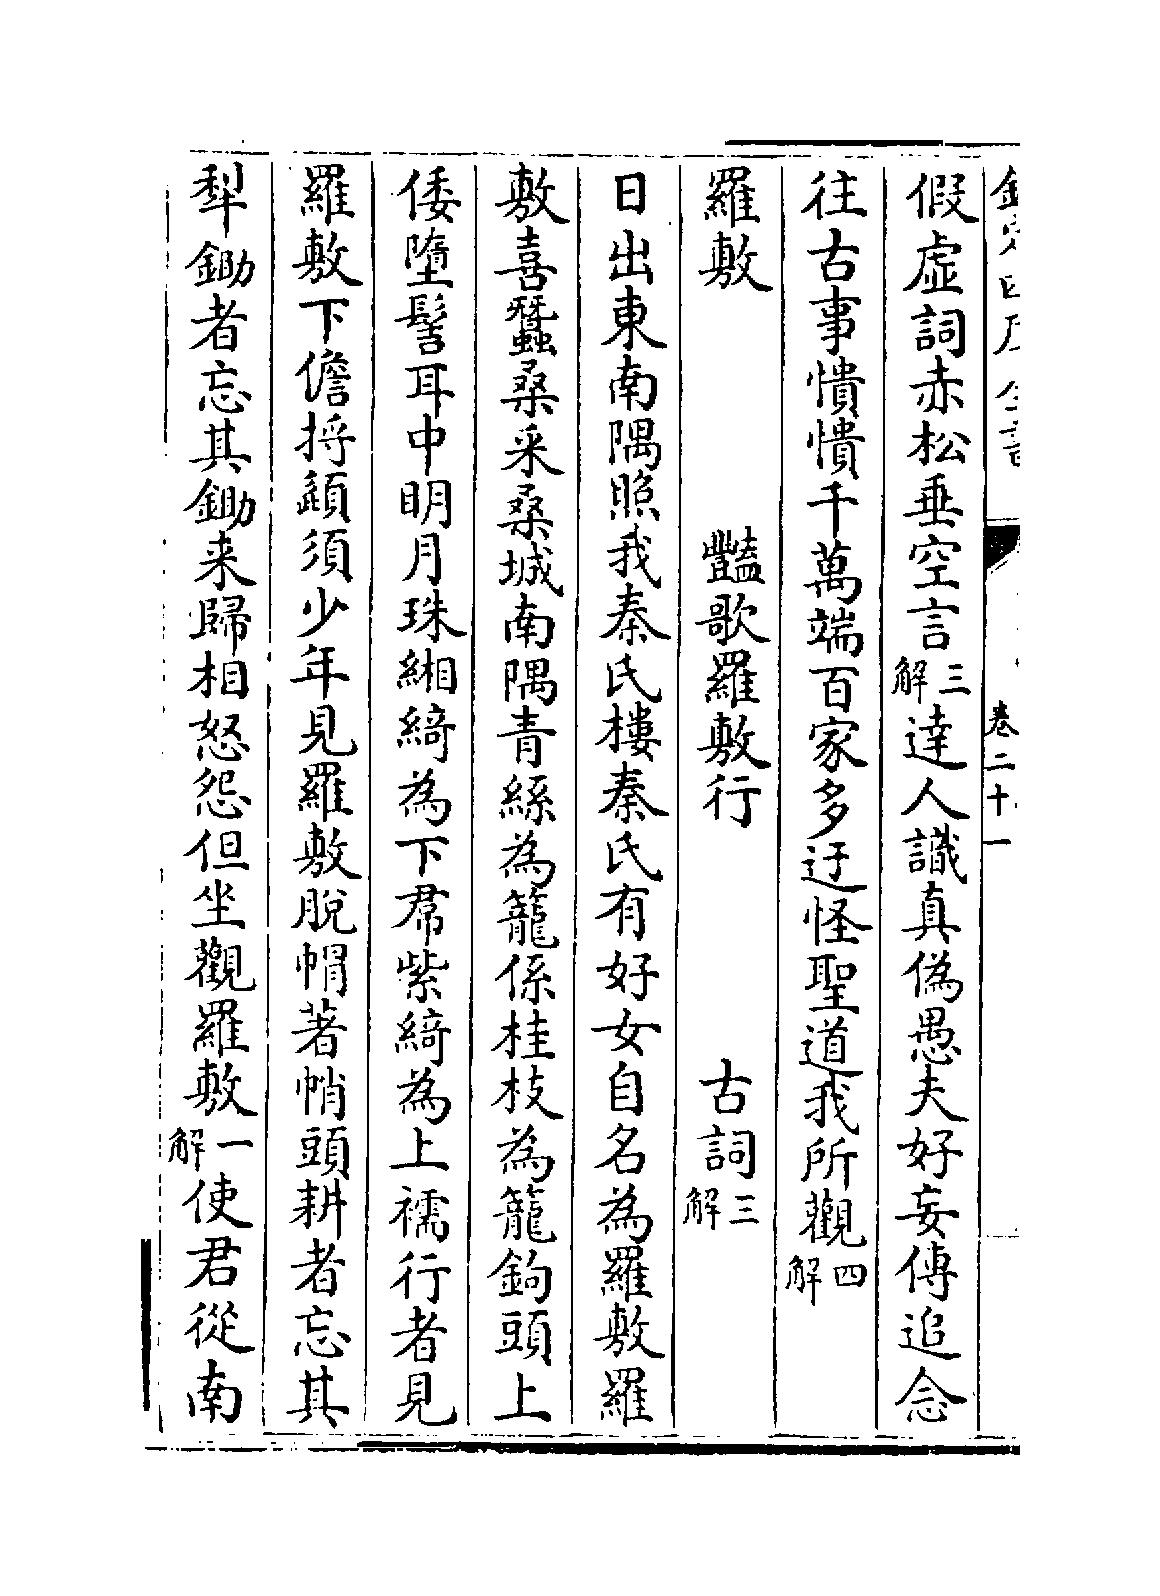 卷二十一
假虚詞赤松垂空言三解達人識真偽愚夫好妄傳追念
往古事憒憒千萬端百家多迂怪聖道我所觀四解
羅敷 豔歌羅敷行 古詞三解
日出東南隅照我秦氏樓秦氏有好女自名為羅敷羅
敷喜蠶桑采桑城南隅青絲為籠係桂枝為籠鉤頭上
倭墮髻耳中明月珠緗綺為下帬紫綺為上襦行者見
羅敷下儋捋髭須少年見羅敷脫帽著帩頭耕者忘其
犁鋤者忘其鋤来歸相怒怨但坐觀羅敷一解使君從南